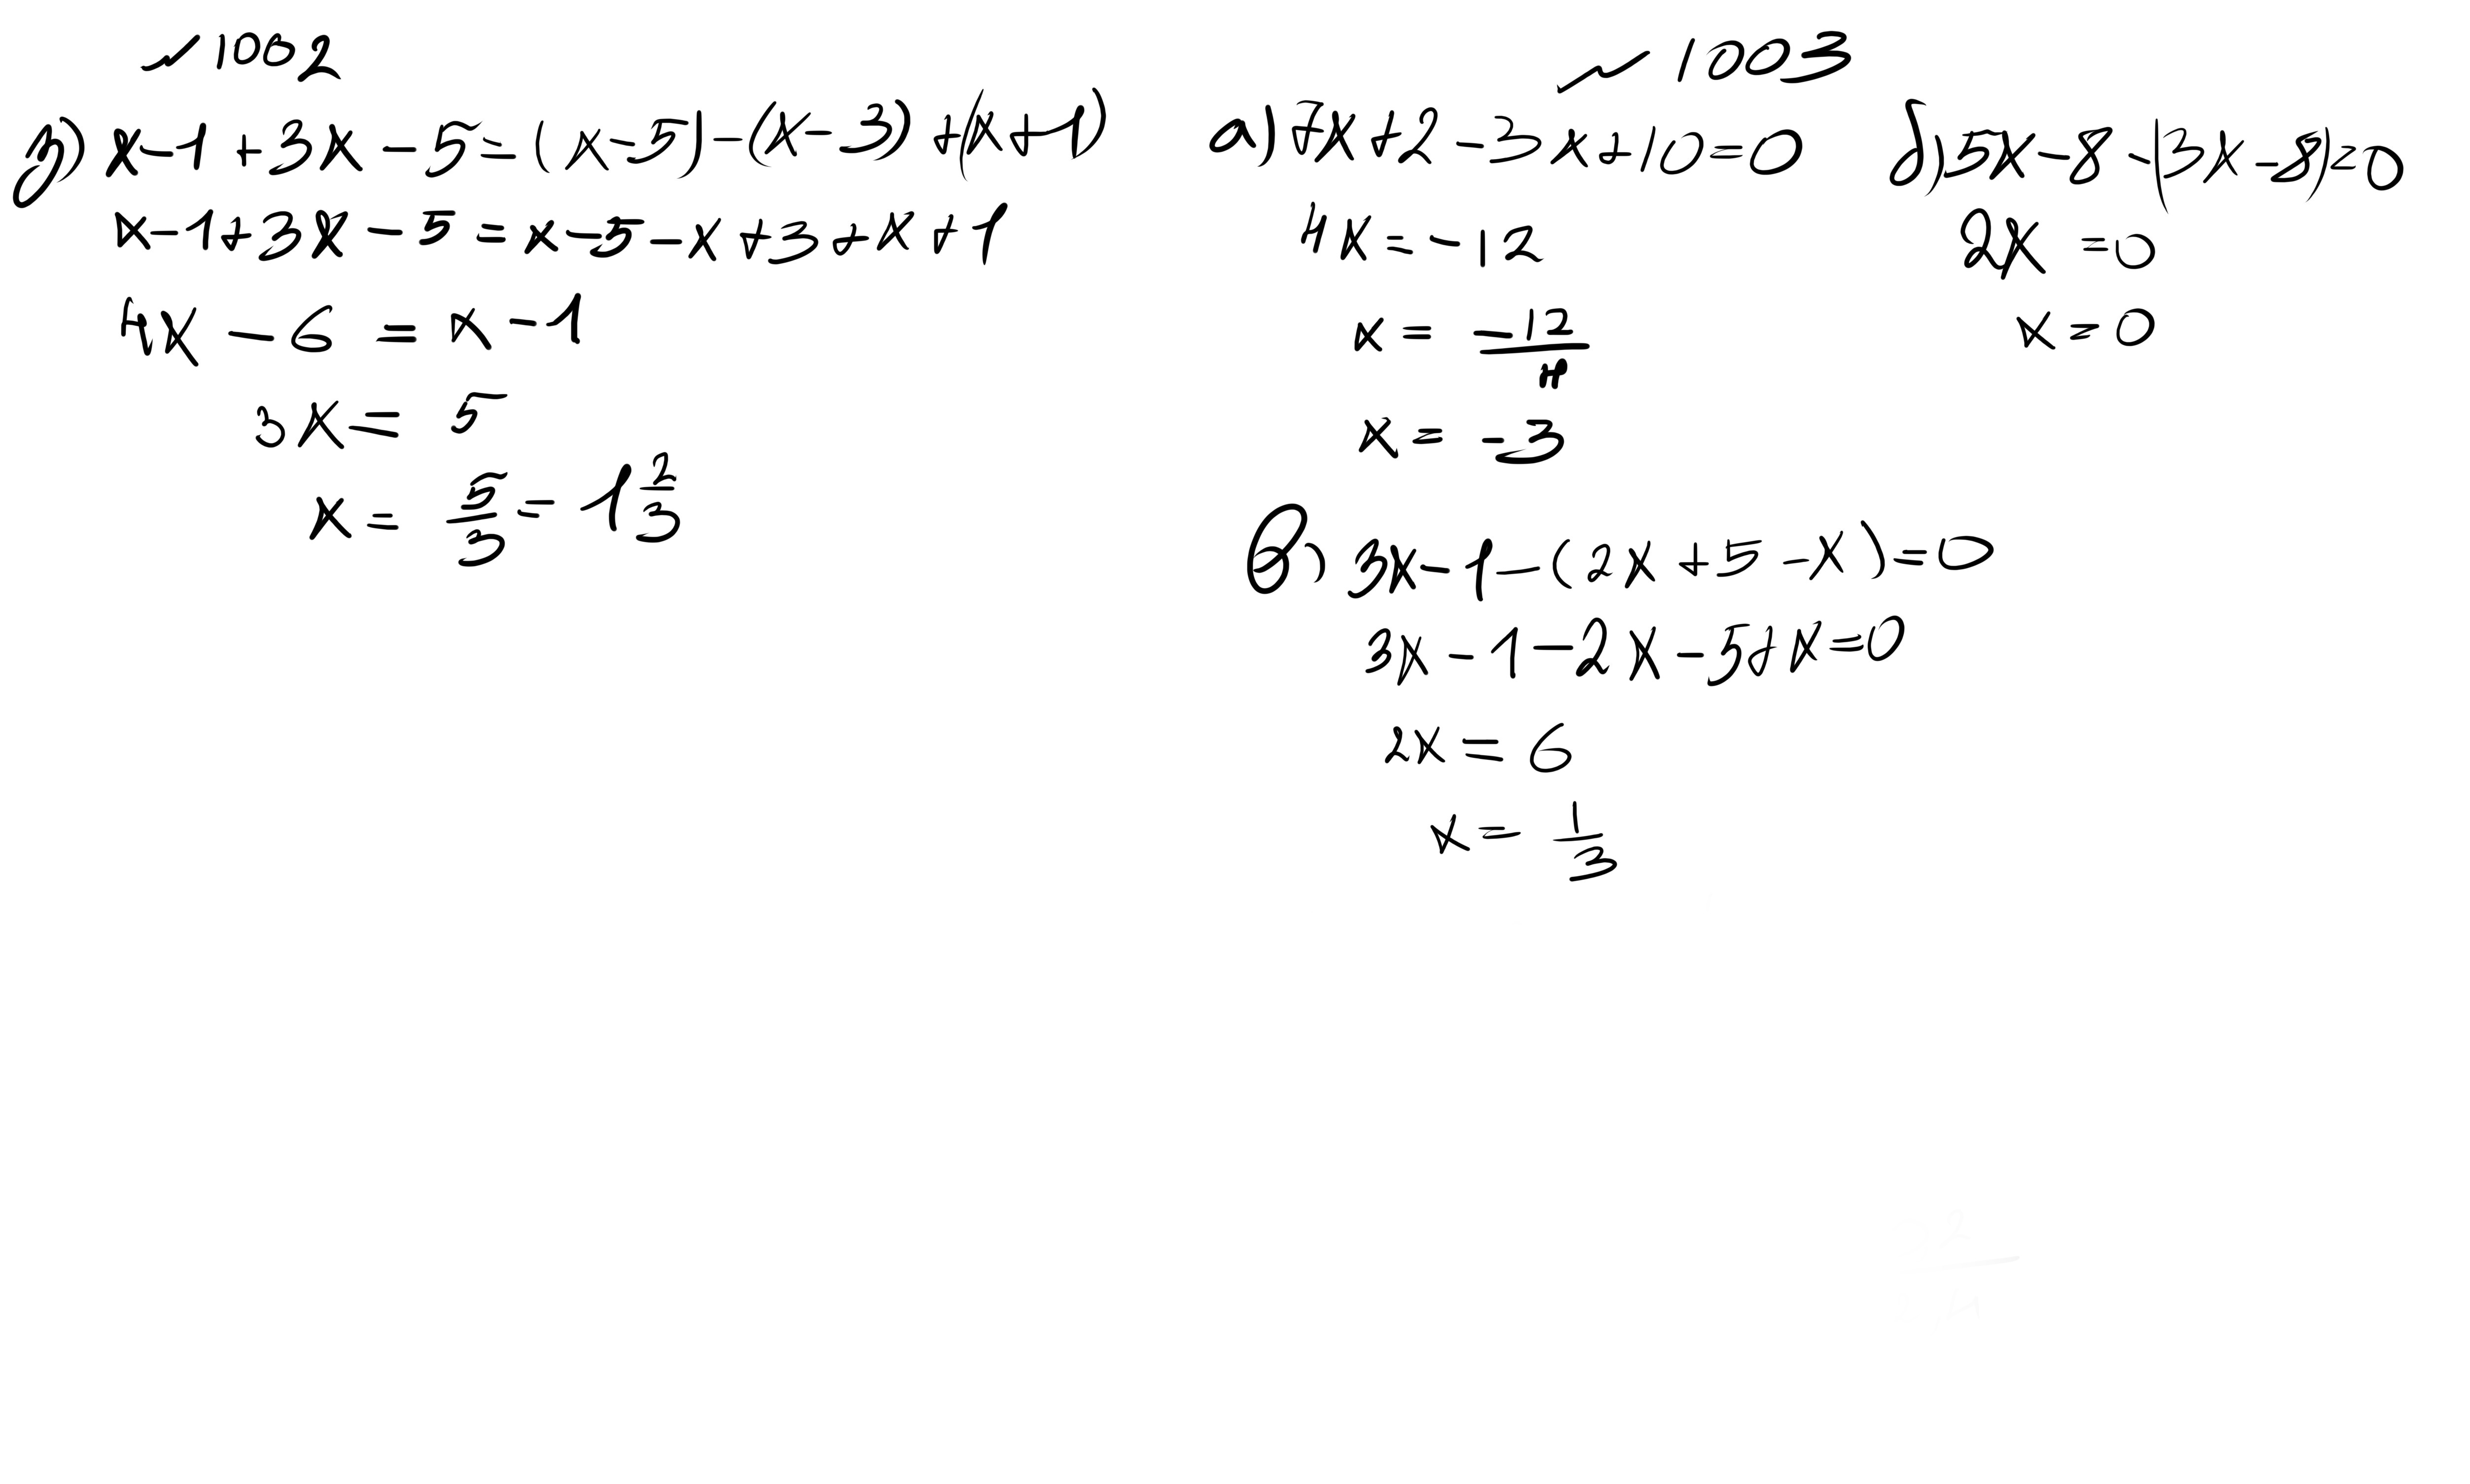 ✓ 1002
д) x-1+3x-5=(x-5)-(x-3)+(x+1)
x-1+3x-5=x-5-x+3+x+1
4x-6=x-1
3x=5
x=5/3=1 2/3
✓ 1003
а) 7x+2-3x+10=0
4x=-12
x=-12/4
x=-3
б) 5x-8-(3x-8)=0
2x=0
x=0
в) 3x-1-(2x+5-x)=0
3x-1-2x-5+x=0
2x=6
x=1/3